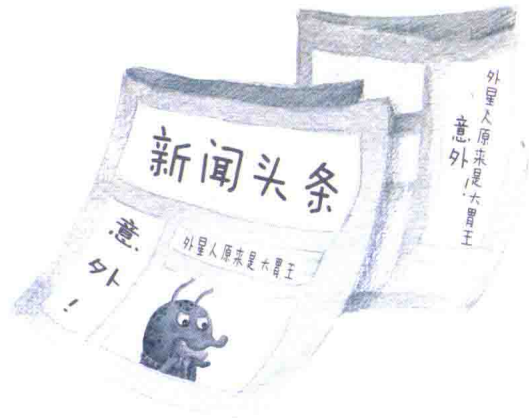 新闻头条
意外！
外星人原来是大胃王
外星人原来是大胃王
意外！